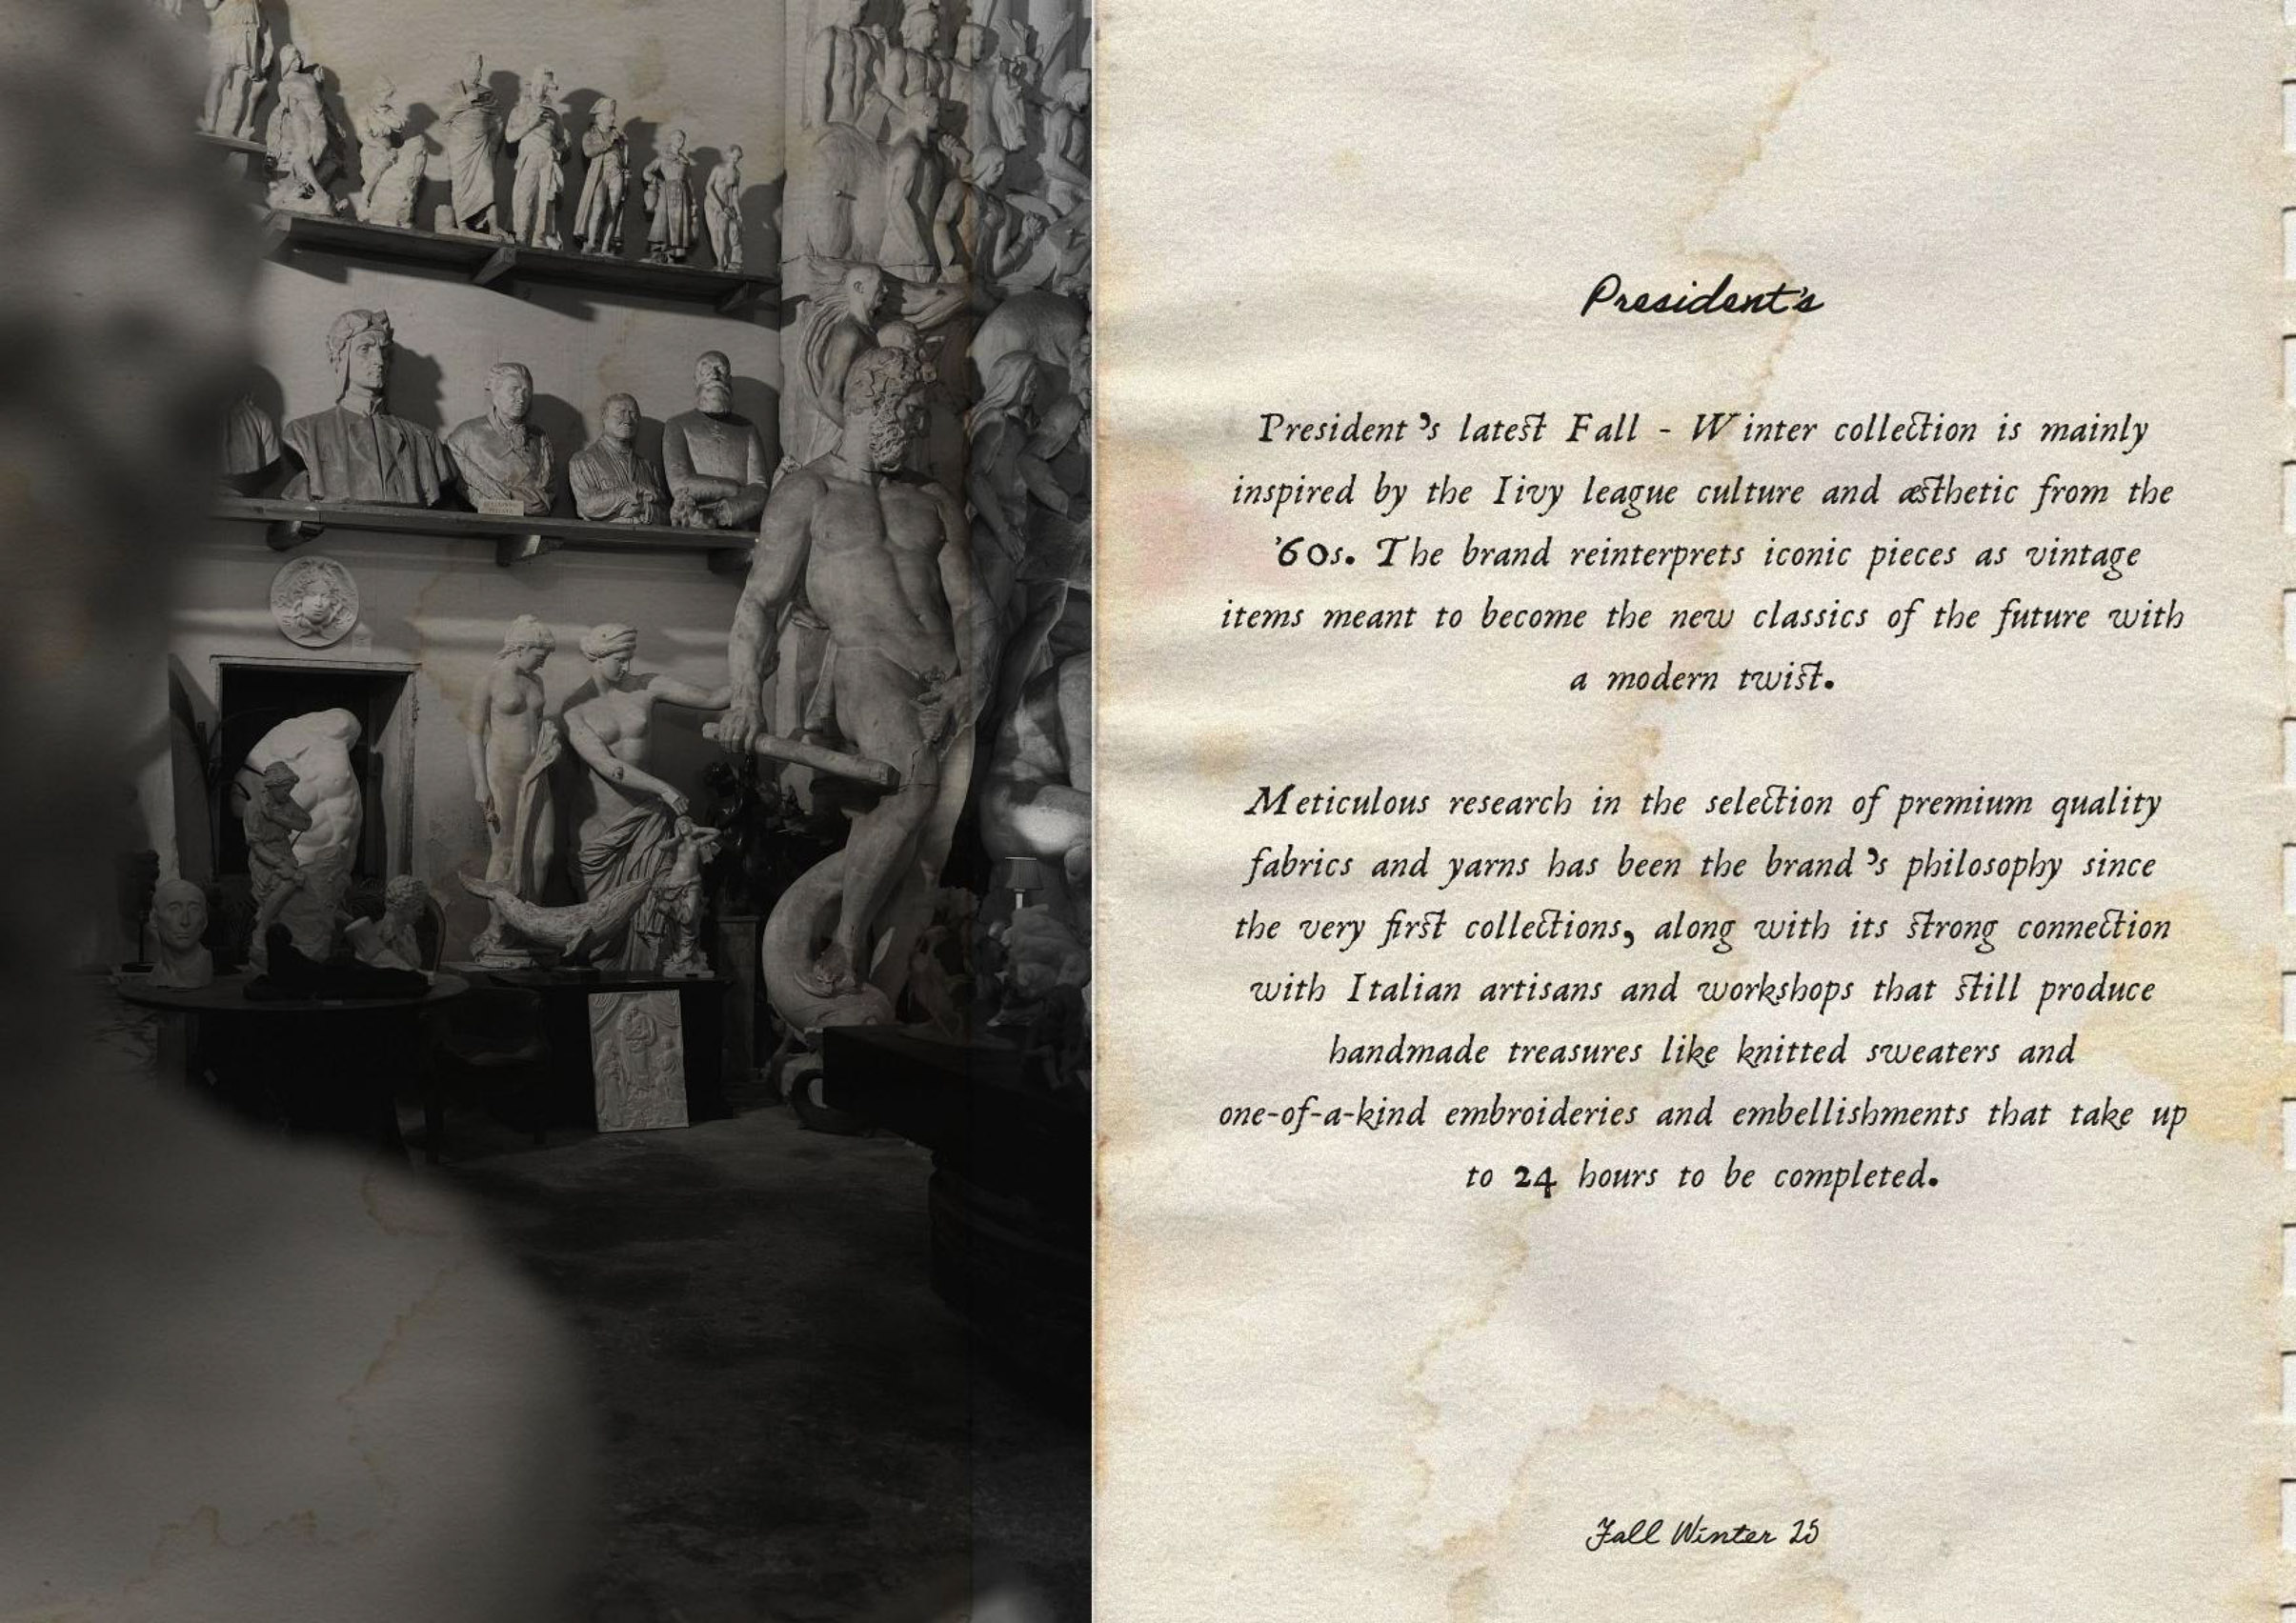 President's
President's latest Fall - Winter collection is mainly
inspired by the Iivy league culture and æsthetic from the
'60s. The brand reinterprets iconic pieces as vintage
items meant to become the new classics of the future with
a modern twist.
Meticulous research in the selection of premium quality
fabrics and yarns has been the brand's philosophy since
the very first collections, along with its strong connection
with Italian artisans and workshops that still produce
handmade treasures like knitted sweaters and
one-of-a-kind embroideries and embellishments that take up
to 24 hours to be completed.
Fall Winter 25